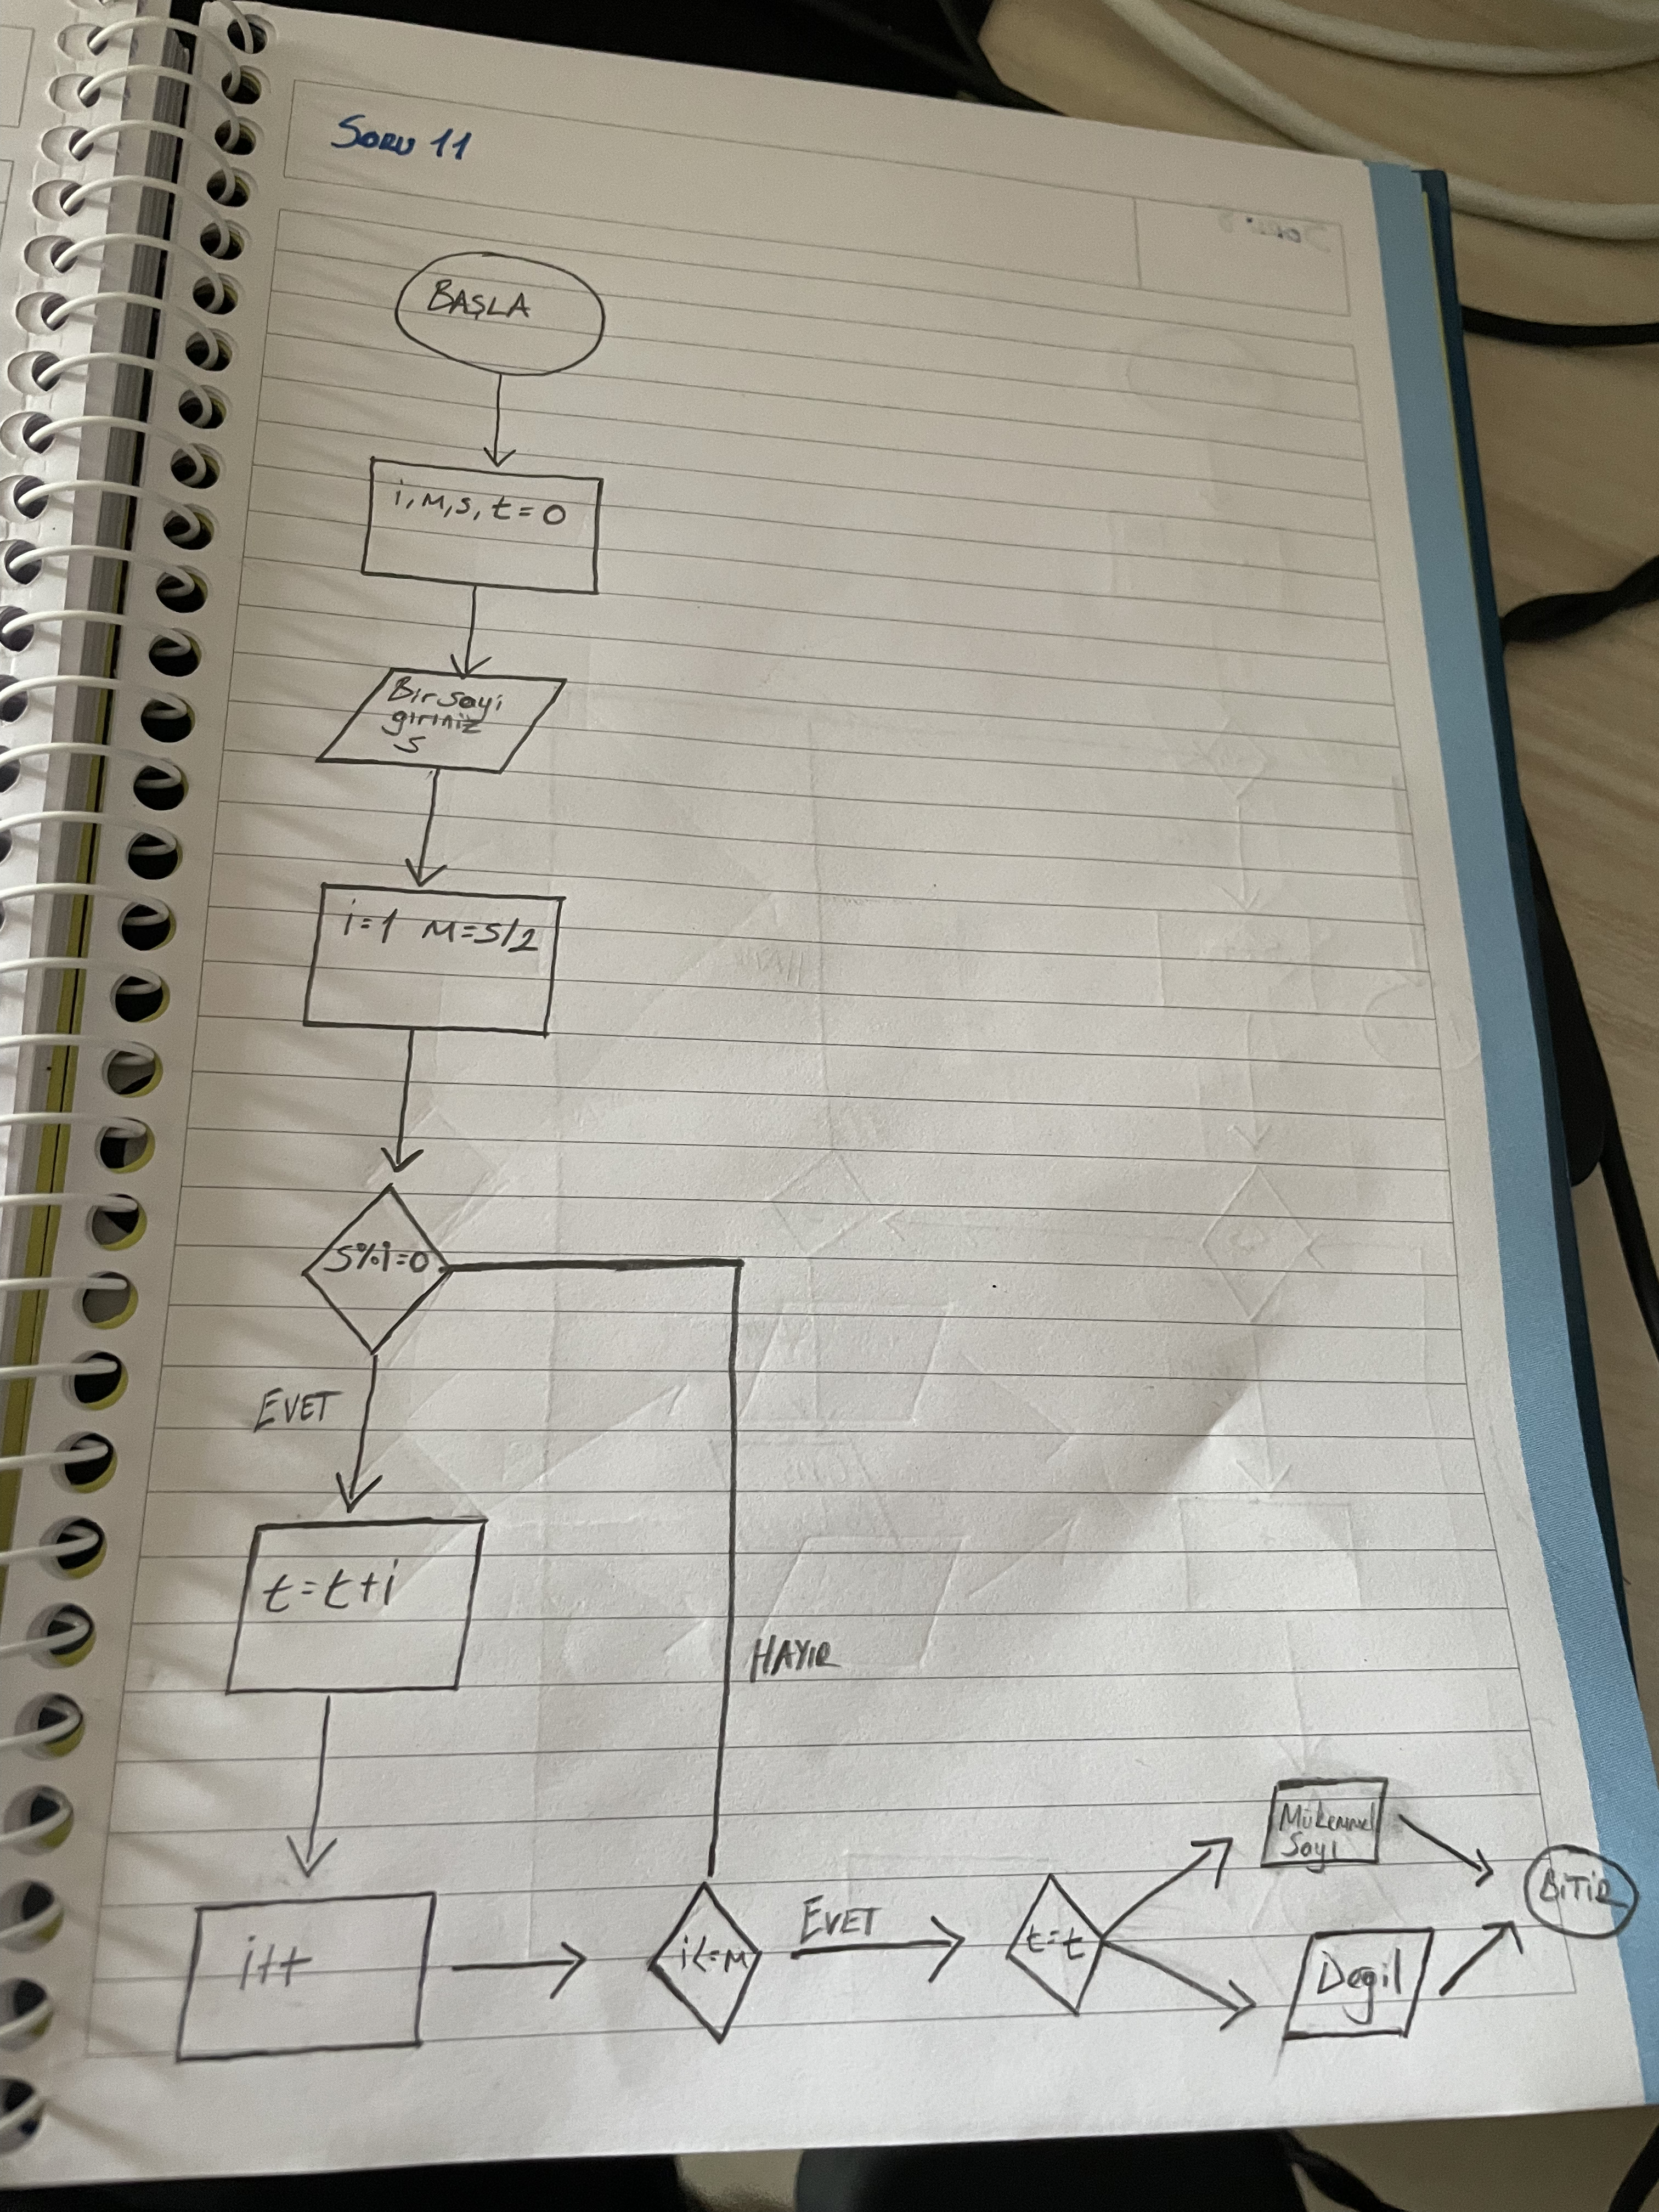 SORU 11
BAŞLA
i, M, s, t = 0
Bir sayi
giriniz
s
i=1 M=S/2
S%i=0
EVET
t=t+i
HAYIR
i++
i<=M
EVET
t=t
Mükemmel
Sayı
Degil
BİTİR